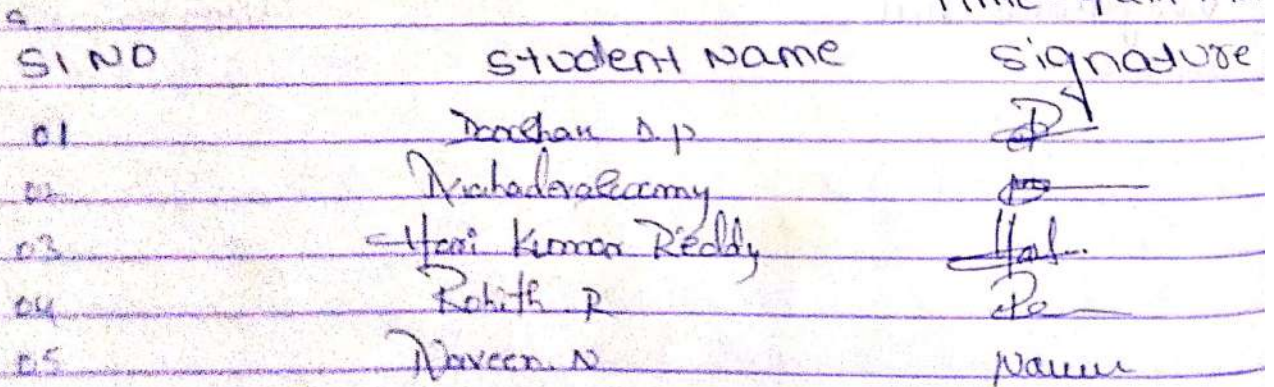 Time
SI NO Student Name Signature
01 Darshan D.P
02 Mahadevaswamy
03 Hari Kumar Reddy Hari
04 Rohith R
05 Naveen. N Naveen